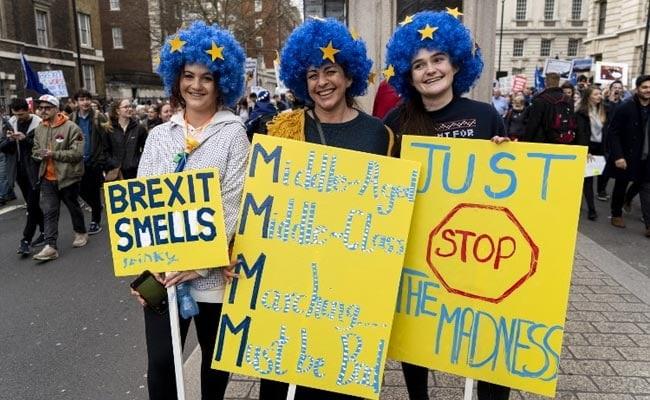 BREXIT
SMELLS
stinky
Middle-Aged
Middle-Class
Marching...
Must be Bad
JUST
STOP
THE MADNESS